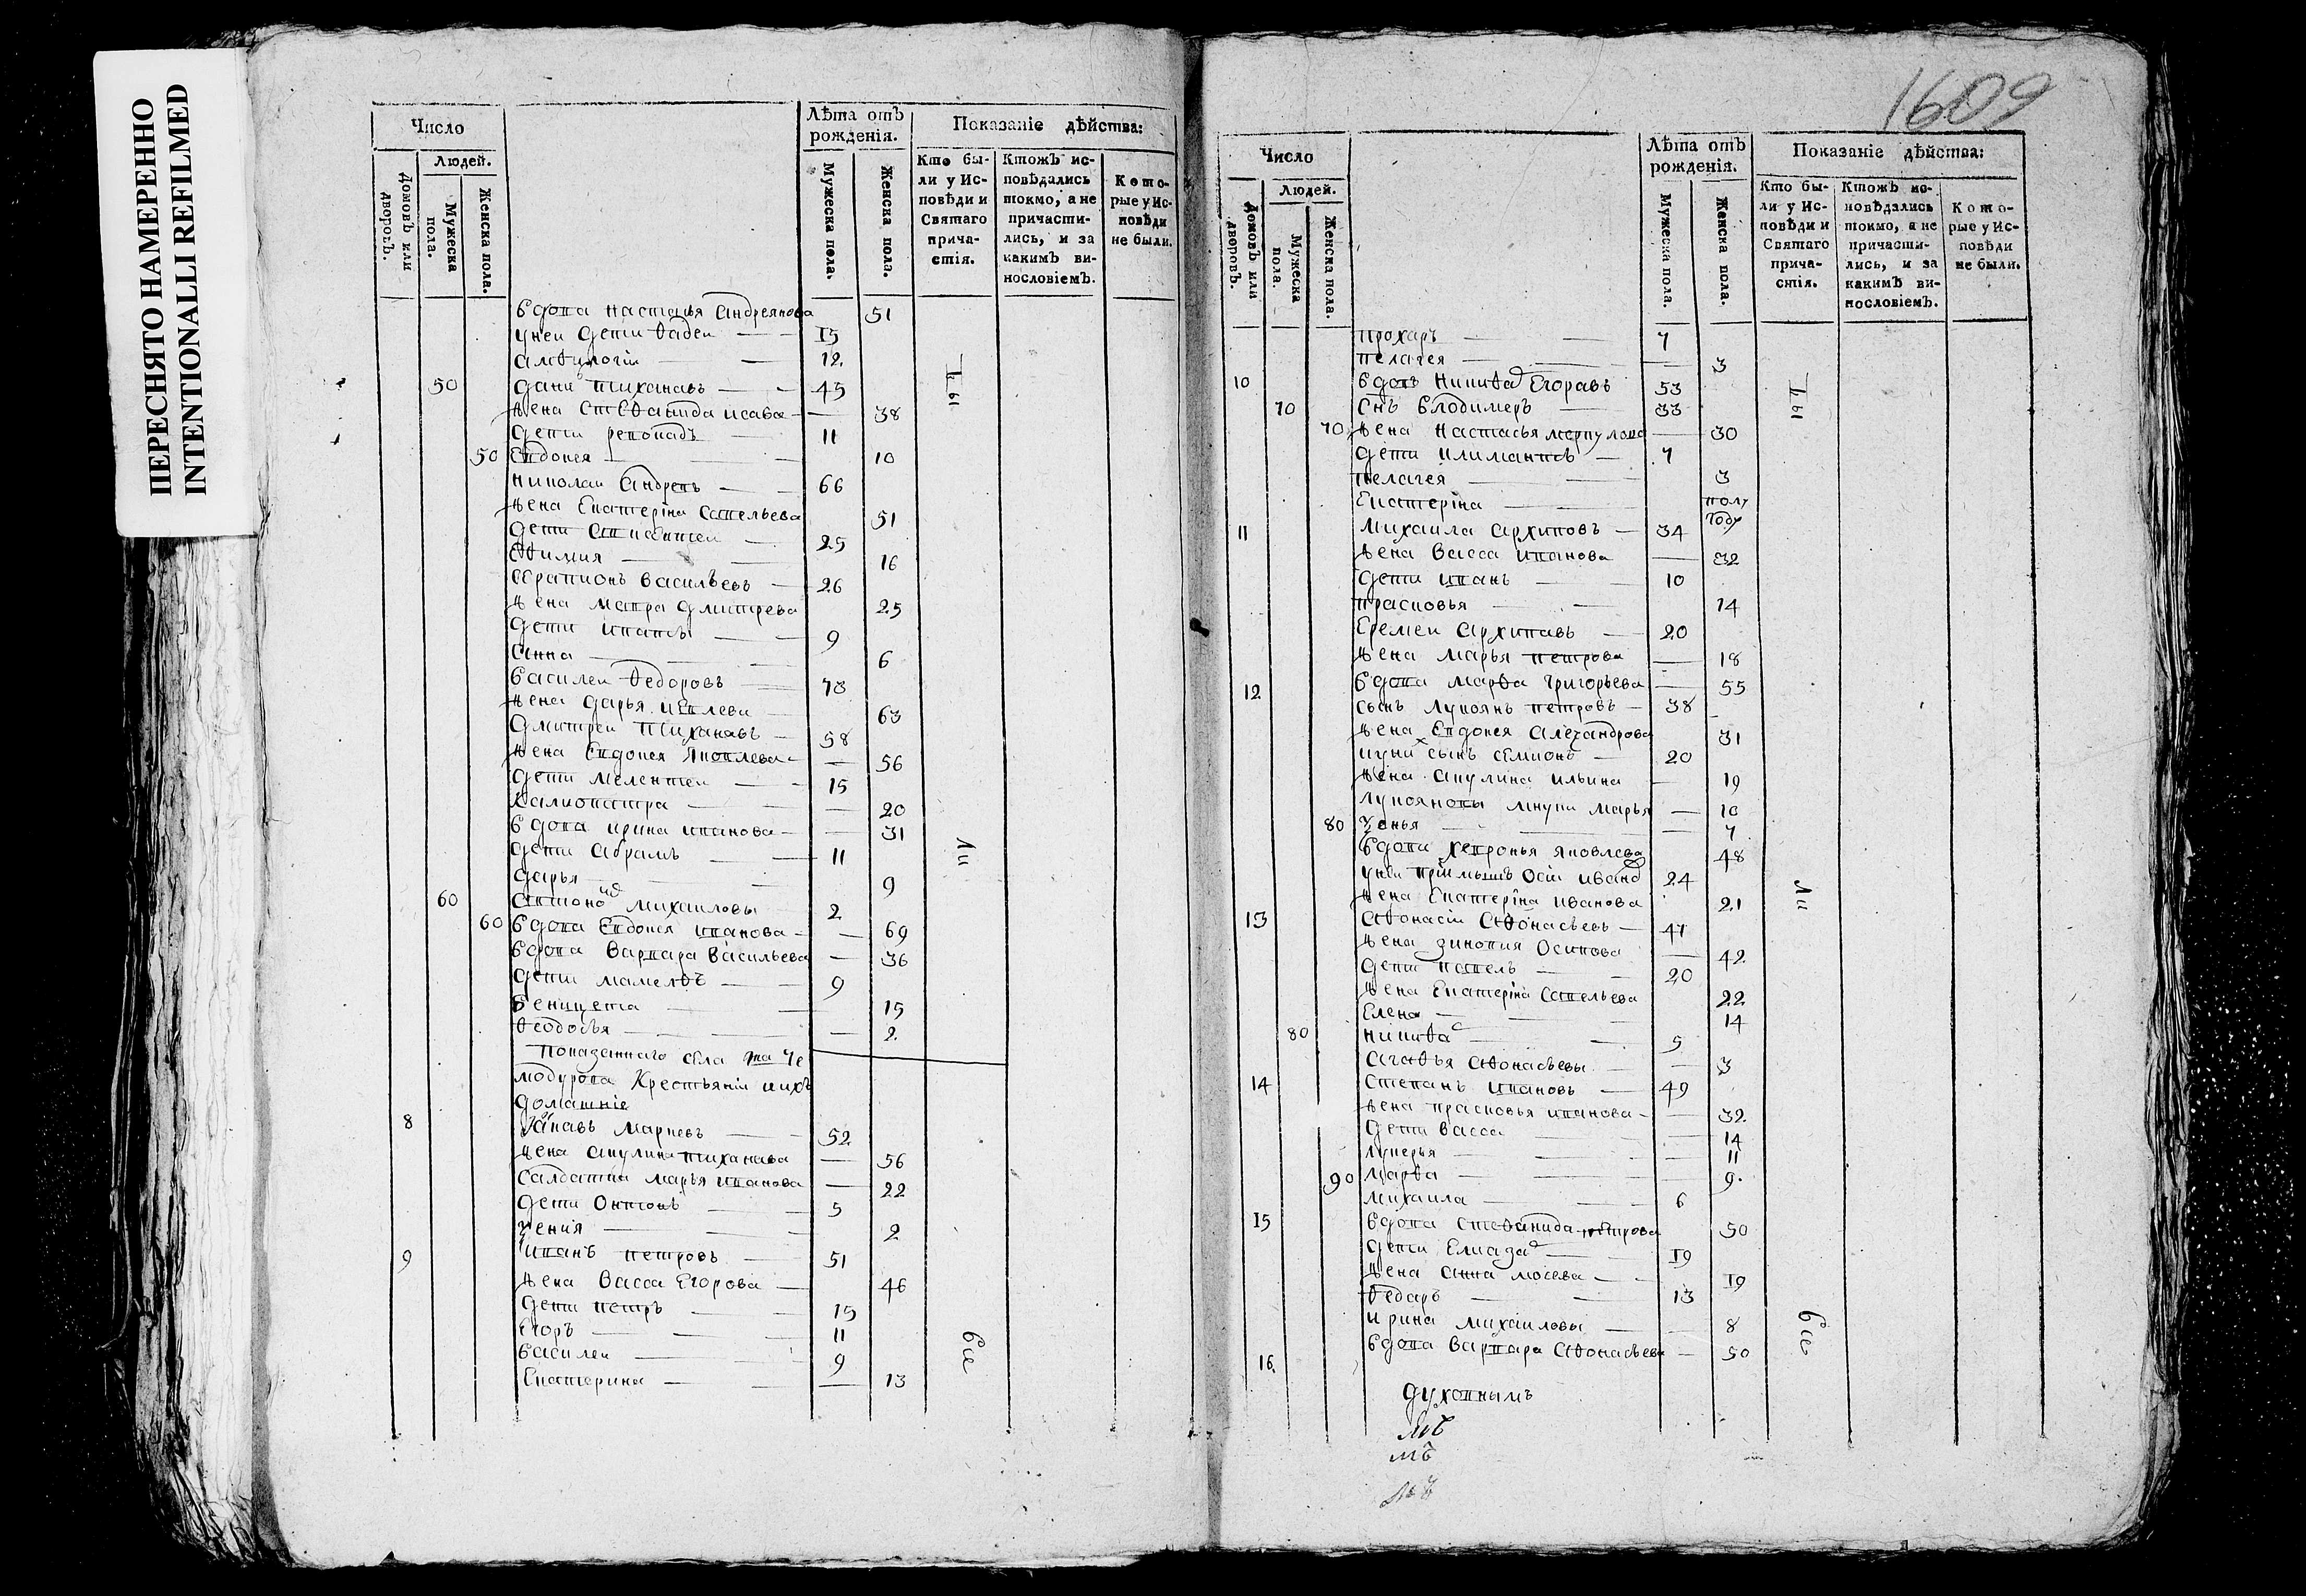 ПЕРЕСНЯТО НАМЕРЕННО
INTENTIONALLI REFILMED
Число
Людей.
Домовъ или дворовъ.
Мужеска пола.
Женска пола.
Лѣта отъ рожденія.
Мужеска пола.
Женска пола.
Показаніе дѣйства:
Кто бы-
ли у Ис-
повѣди и
Святаго
прича-
стія.
Ктожъ ис-
повѣдались
токмо, а не
причасти-
лись, и за
какимъ ви-
нословіемъ.
Кото-
рые у Ис-
повѣди
не были.
вдова Настасья Андреянова 51
унеи дети Фадеи 15
12
50 Тиханавъ 45
жена Стефанида Исава 38
дети 11
50 Евдокея 10
Николаи Андреевъ 66
жена Екатеріна Савельева 51
дети 25
Ефимия 16
Васильевъ 26
жена Мавра Дмитрева 25
дети 9
Анна 6
Василеи Федоровъ 73
жена Дарья 63
Дмитреи Тиханавъ 58
жена Евдокея Яковлева 56
дети Мелентеи 15
Калиопистра 20
вдова Ирина Иванова 31
дети Абрамъ 11
Дарья 9
60 Михаиловы 2
60 вдова Евдокея Иванова 69
вдова Варвара Васильева 36
дети Мамелфъ 9
15
Феодосья 2
Показаннаго села
Крестьяніи ихъ
домашніе
8 Маркевъ 52
жена Акулина Тиханава 56
Салдатка Марья Иванова 22
дети Онтонъ 5
2
9 Иванъ Петровъ 51
жена Васса Егорова 46
дети Петръ 15
Егоръ 11
Василеи 9
Екатерина 13
Ты
Ли
все
1609
Число
Людей.
Домовъ или дворовъ.
Мужеска пола.
Женска пола.
Лѣта отъ рожденія.
Мужеска пола.
Женска пола.
Показаніе дѣйства:
Кто бы-
ли у Ис-
повѣди и
Святаго
прича-
стія.
Ктожъ ис-
повѣдались
токмо, а не
причасти-
лись, и за
какимъ ви-
нословіемъ.
Кото-
рые у Ис-
повѣди
не были.
Прохаръ 7
Пелагея 3
10 вдовъ Никифа Егоравъ 53
70 снъ Влодимеръ 33
70 жена Настасья Меркулова 30
дети Климантъ 7
Пелагея 3
Екатеріна полу году
11 Михаила Архиповъ 34
жена Васса Иванова 32
дети Иванъ 10
Прасковья 14
Еремеи Архипавъ 20
жена Марья Петрова 18
12 вдова Марфа Григорьева 55
сынъ Лукоянъ Петровъ 38
жена Евдокея Алеѯандрова 31
сынъ Семионъ 20
жена Акулина Ильина 19
Лукояновы Марья 10
80 7
вдова Хевронья Яковлева 48
унеи приімышъ Осиі Ивано 24
жена Екатеріна Иванова 21
13 Афонасіи Афонасьевъ 47
жена Зиновия Осипова 42
дети Павелъ 20
жена Екатеріна Савельева 22
Елена 14
80 Никифа 5
Агафья Афонасьевы 3
14 Степанъ Ивановъ 49
жена Прасковья Иванова 32
дети Васса 14
Лукерья 11
90 Марфа 9
Михаила 6
15 вдова Стефанида Петрова 50
дети Елиаза 19
жена Анна Мосева 19
Федаръ 13
Ирина Михаиловы 8
16 вдова Варвара Афонасьева 50
Духовнымъ
мъ
мъ
мъ
Ты
Ли
все